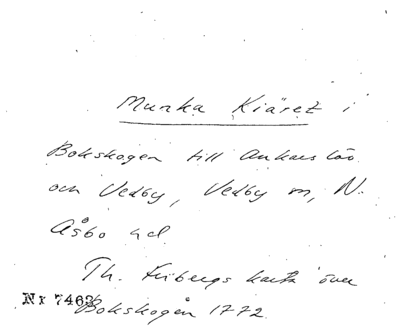 Munka Kiäret i
Bokskogen till Ankarslöv
och Vedby, Vedby sn, N.
Åsbo hd.
Th. Fribergs karta över
Bokskogen 1772.
Nr 7463